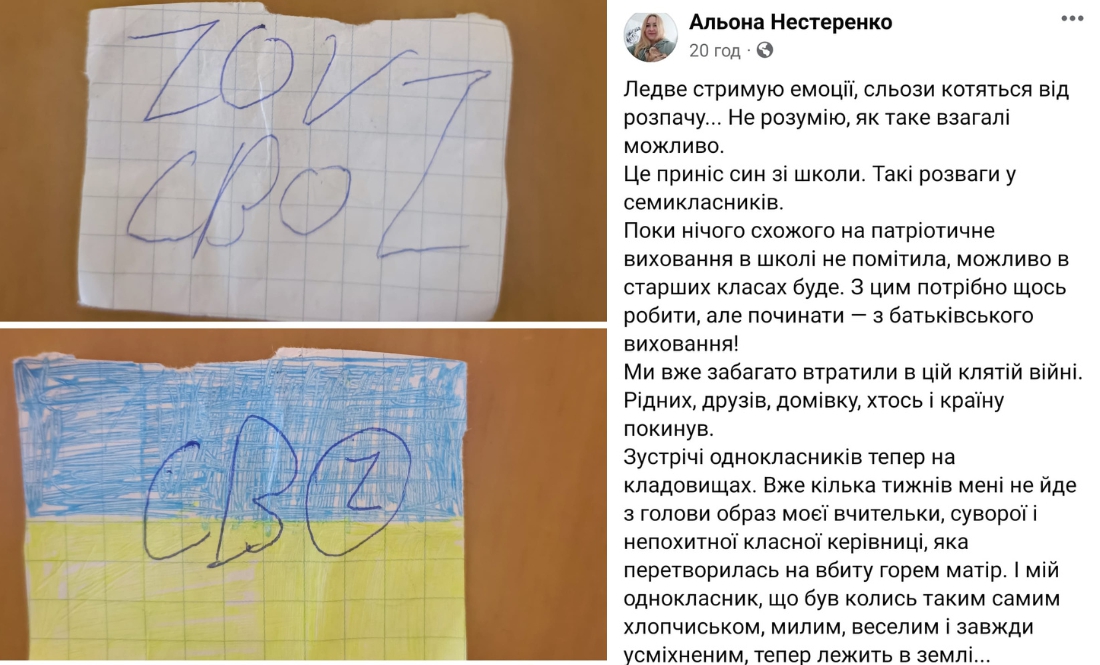 ZOV Z
СВО
СВО
Z
Альона Нестеренко
20 год ·
Ледве стримую емоції, сльози котяться від
розпачу... Не розумію, як таке взагалі
можливо.
Це приніс син зі школи. Такі розваги у
семикласників.
Поки нічого схожого на патріотичне
виховання в школі не помітила, можливо в
старших класах буде. З цим потрібно щось
робити, але починати — з батьківського
виховання!
Ми вже забагато втратили в цій клятій війні.
Рідних, друзів, домівку, хтось і країну
покинув.
Зустрічі однокласників тепер на
кладовищах. Вже кілька тижнів мені не йде
з голови образ моєї вчительки, суворої і
непохитної класної керівниці, яка
перетворилась на вбиту горем матір. І мій
однокласник, що був колись таким самим
хлопчиськом, милим, веселим і завжди
усміхненим, тепер лежить в землі...